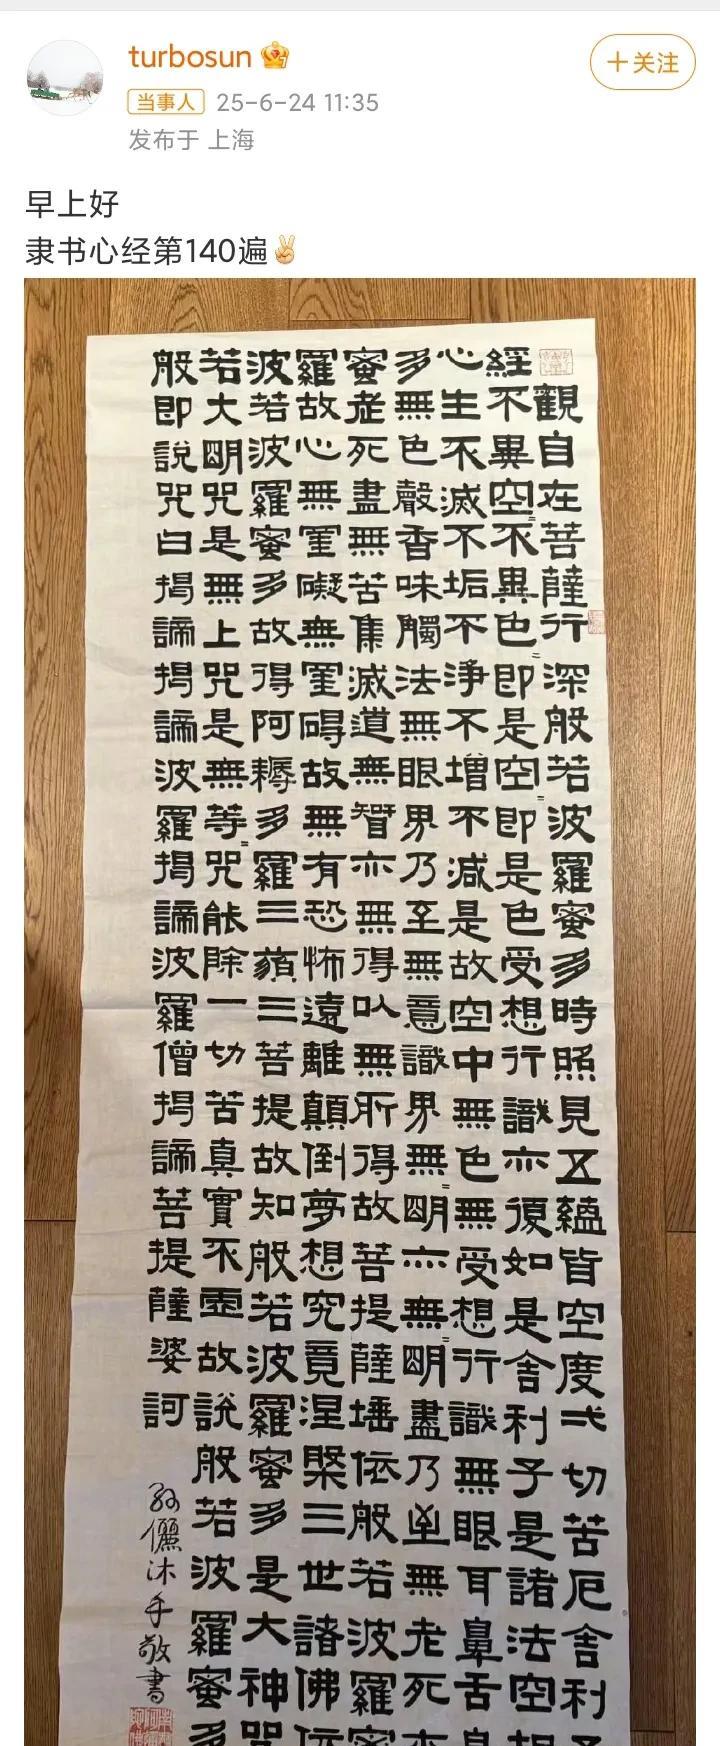 turbosun
当事人 25-6-24 11:35
发布于 上海
＋关注
早上好
隶书心经第140遍✌🏻
般若波羅蜜多心經
觀自在菩薩行深般若波羅蜜多時照見五蘊皆空度弌切苦厄舍利
不異空〓不異色〓即是空〓即是色受想行識亦復如是舍利子是諸法空相
生不滅不垢不淨不增不減是故空中無色無受想行識無眼耳鼻舌身
無色聲香味觸法無眼界乃至無意識界無〓明亦無〓明盡乃至無老死亦
老死盡無苦集滅道無智亦無得以無所得故菩提薩埵依般若波羅蜜
故心無罣礙無罣碍故無有恐怖遠離顛倒夢想究竟涅槃三世諸佛依
若波羅蜜多故得阿耨多羅三藐三菩提故知般若波羅蜜多是大神咒
大明咒是無上咒是無等〓咒能除一切苦真實不虛故說般若波羅蜜多
即說咒曰揭諦揭諦波羅揭諦波羅僧揭諦菩提薩婆訶
孫儷沐手敬書